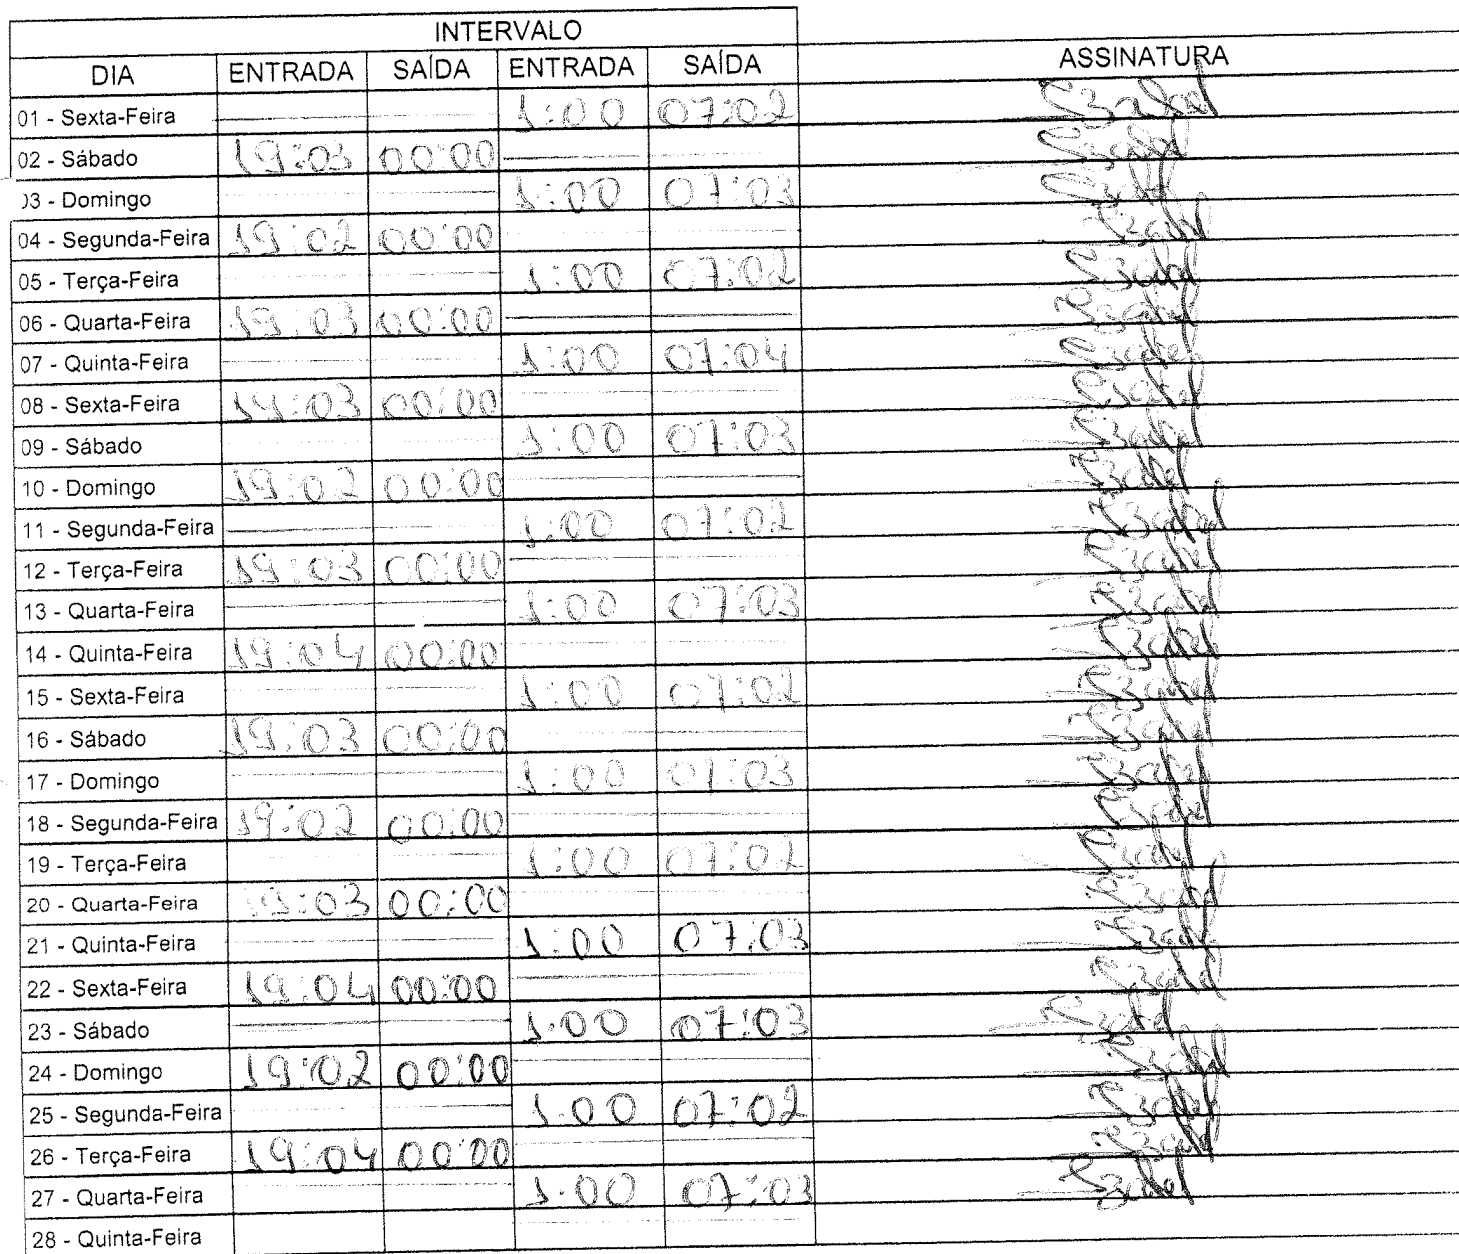 INTERVALO
DIA ENTRADA SAÍDA ENTRADA SAÍDA ASSINATURA
01 - Sexta-Feira 1:00 07:02
02 - Sábado 19:03 00:00
03 - Domingo 1:00 07:03
04 - Segunda-Feira 19:02 00:00
05 - Terça-Feira 1:00 07:02
06 - Quarta-Feira 19:03 00:00
07 - Quinta-Feira 1:00 07:04
08 - Sexta-Feira 19:03 00:00
09 - Sábado 1:00 07:03
10 - Domingo 19:02 00:00
11 - Segunda-Feira 1:00 07:02
12 - Terça-Feira 19:03 00:00
13 - Quarta-Feira 1:00 07:03
14 - Quinta-Feira 19:04 00:00
15 - Sexta-Feira 1:00 07:02
16 - Sábado 19:03 00:00
17 - Domingo 1:00 07:03
18 - Segunda-Feira 19:02 00:00
19 - Terça-Feira 1:00 07:02
20 - Quarta-Feira 19:03 00:00
21 - Quinta-Feira 1:00 07:03
22 - Sexta-Feira 19:04 00:00
23 - Sábado 1:00 07:03
24 - Domingo 19:02 00:00
25 - Segunda-Feira 1:00 07:02
26 - Terça-Feira 19:04 00:00
27 - Quarta-Feira 1:00 07:03
28 - Quinta-Feira